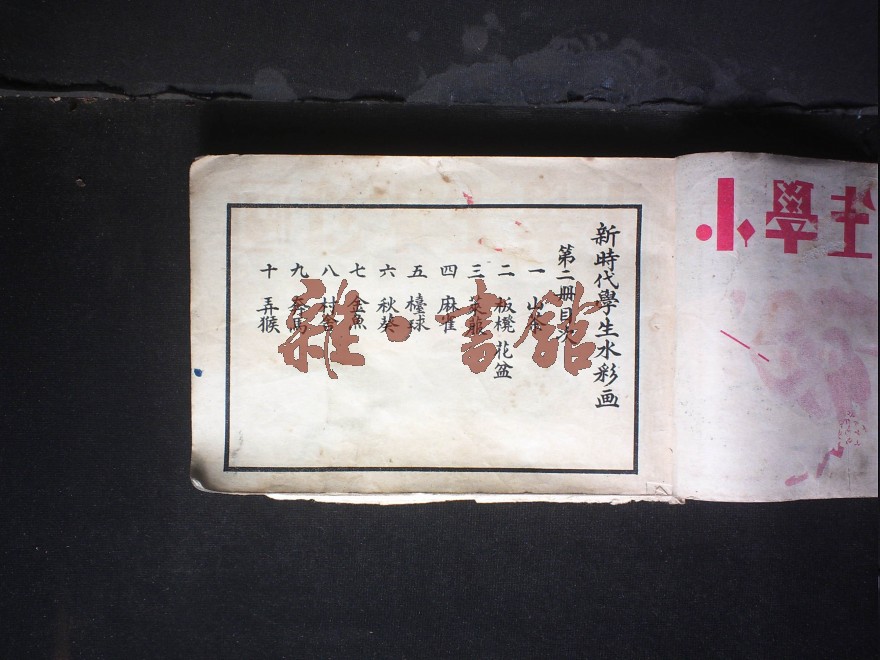 新時代學生水彩画
第二册目次
一 山茶
二 板櫈 花盆
三 菜瓶
四 麻雀
五 檯球
六 秋葵
七 金魚
八 村舍
九 奔馬
十 弄猴
雜·書館
小學生